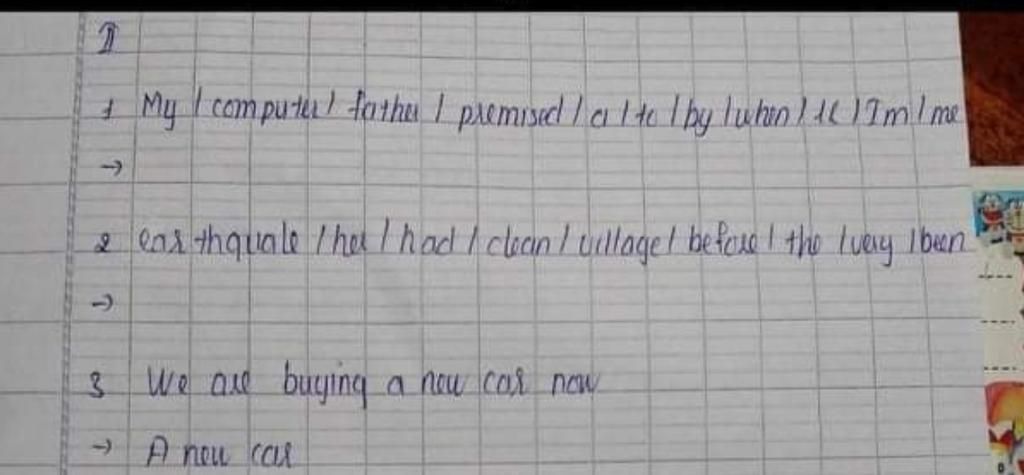 I
1 My / computer / father / promised / a / to / by / when / 16 / I'm / me
→
2 earthquake / her / had / clean / village / before / the / very / been
→
3 We are buying a new car now
→ A new car